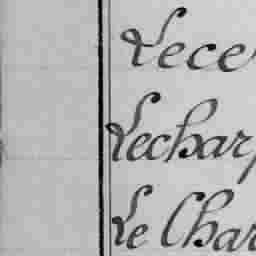 Lece
Lechar
Le Char